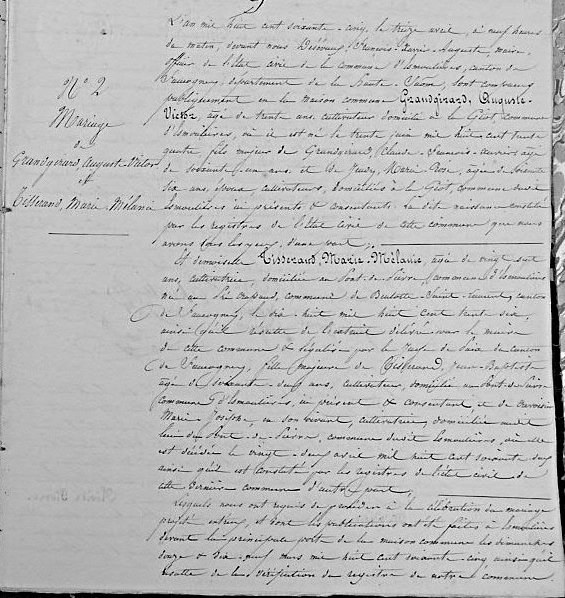 N° 2
Mariage
de
Grandgirard, August-Victor
et
Tisserand, Marie Mélanie
L'an mil huit cent soixante-cinq, le treize avril, à neuf heures
du matin, devant nous François-Xavier-Auguste, maire,
officier de l'état civil de la commune d'Esmoulières, canton de
Faucogney, département de la Haute-Saône, sont comparus
publiquement en la maison commune Grandgirard, Auguste-
Victor, agé de trente ans, cultivateur domicilié à la commune
d'Esmoulières, où il est né le trente juin mil huit cent trente
quatre, fils majeur de Grandgirard, Claude-François-Xavier, agé
de soixante un ans, et de Jeudy, Marie Rose, agée de soixante
six ans, époux cultivateurs, domiciliés à commune dudit
Esmoulières ici présents & consentants. La dit naissance constatée
par les registres de l'état civil de cette commune que nous
avons sous les yeux, d'une part,
Et demoiselle Tisserand, Marie-Mélanie, agée de vingt huit
ans, cultivatrice, domiciliée au Pont-de-Pierre (commune d'Esmoulières
née au commune de Beulotte-Saint-Laurent, canton
de Faucogney, le dix-huit mil huit cent trente six,
ainsi qu'il résulte de l'extrait délivré par le maire
de cette commune & légalisé par le Juge de Paix du canton
de Faucogney, fille majeure de Tisserand, Jean-Baptiste
agé de soixante ans, cultivateur, domicilié au Pont-de-Pierre
(commune d'Esmoulières, ici présent & consentant, et de
Marie-Josèphe, en son vivant, cultivatrice, domiciliée audit
lieu du Pont-de-Pierre, commune dudit Esmoulières, où elle
est décédée le vingt avril mil huit cent soixante
ainsi qu'il est constaté par les registres de l'état civil de
cette dernière commune d'autre part,
Lesquels nous ont requis de procéder à la célébration du mariage
projeté entr'eux, et dont les publications ont été faites à Esmoulières
devant la principale porte de la maison commune les dimanches
douze & dix-neuf mars mil huit cent soixante-cinq ainsi qu'il
résulte de la vérification du registre de notre commune